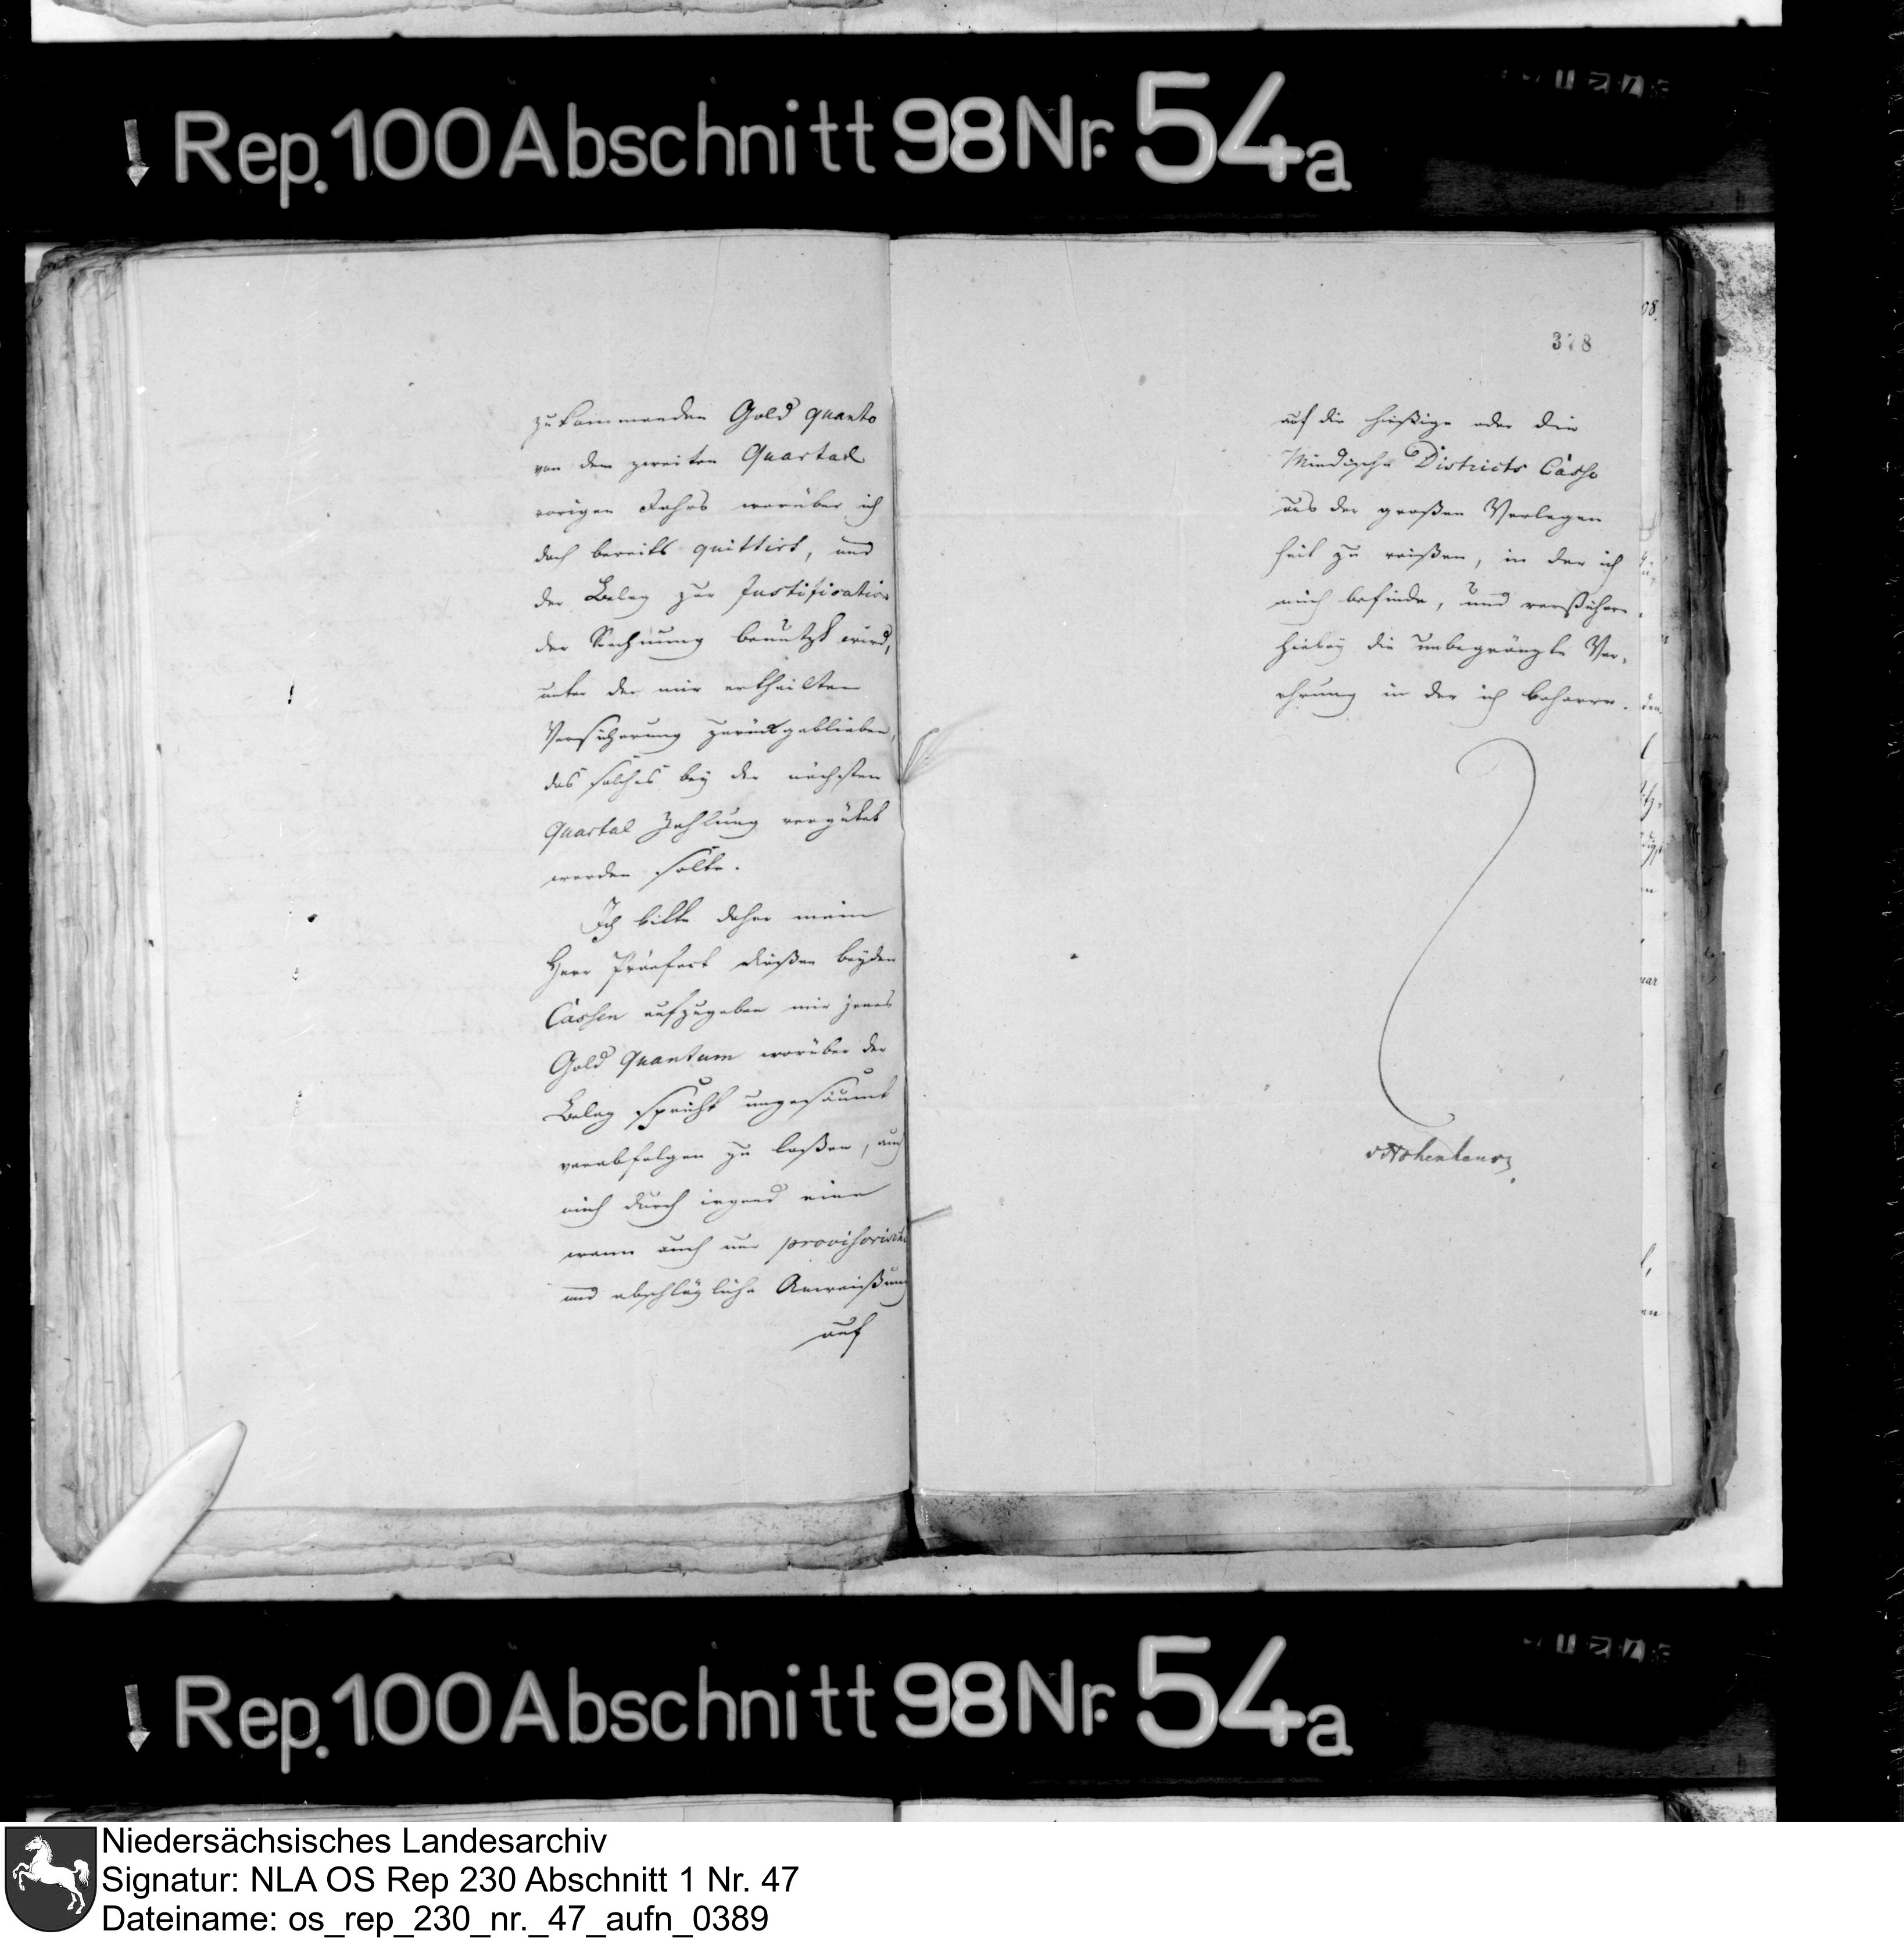 Rep. 100 Abschnitt 98 Nr. 54a
zukommenden Gold quanto
von dem zweiten Quartal
vorigen Jahrs worüber ich
doch bereits quittirt, und
der Belag zur Justification
der Rechnung benutzt wird,
unter der mir ertheilten
Versicherung zurückgeblieben,
das solches bey der nächsten
Quartal Zahlung vergütet
werden solte.
Ich bitte daher mein
Herr Präefect dießen beyden
Cassen aufzugeben mir jenes
Gold Quantum worüber der
Belag spricht ungesäumt
verabfolgen zu laßen, auch
mich durch irgend eine
wenn auch nur provisorische
und abschlägliche Anweißung
auf
378
auf die hießige oder die
Mindische Districts Casse
aus der großen Verlegen
heit zu reißen, in der ich
mich befinde, und versichere
hiebey die unbegränzte Ver-
ehrung in der ich beharre.
vHohenhausen
Rep. 100 Abschnitt 98 Nr. 54a
Niedersächsisches Landesarchiv
Signatur: NLA OS Rep 230 Abschnitt 1 Nr. 47
Dateiname: os_rep_230_nr._47_aufn_0389